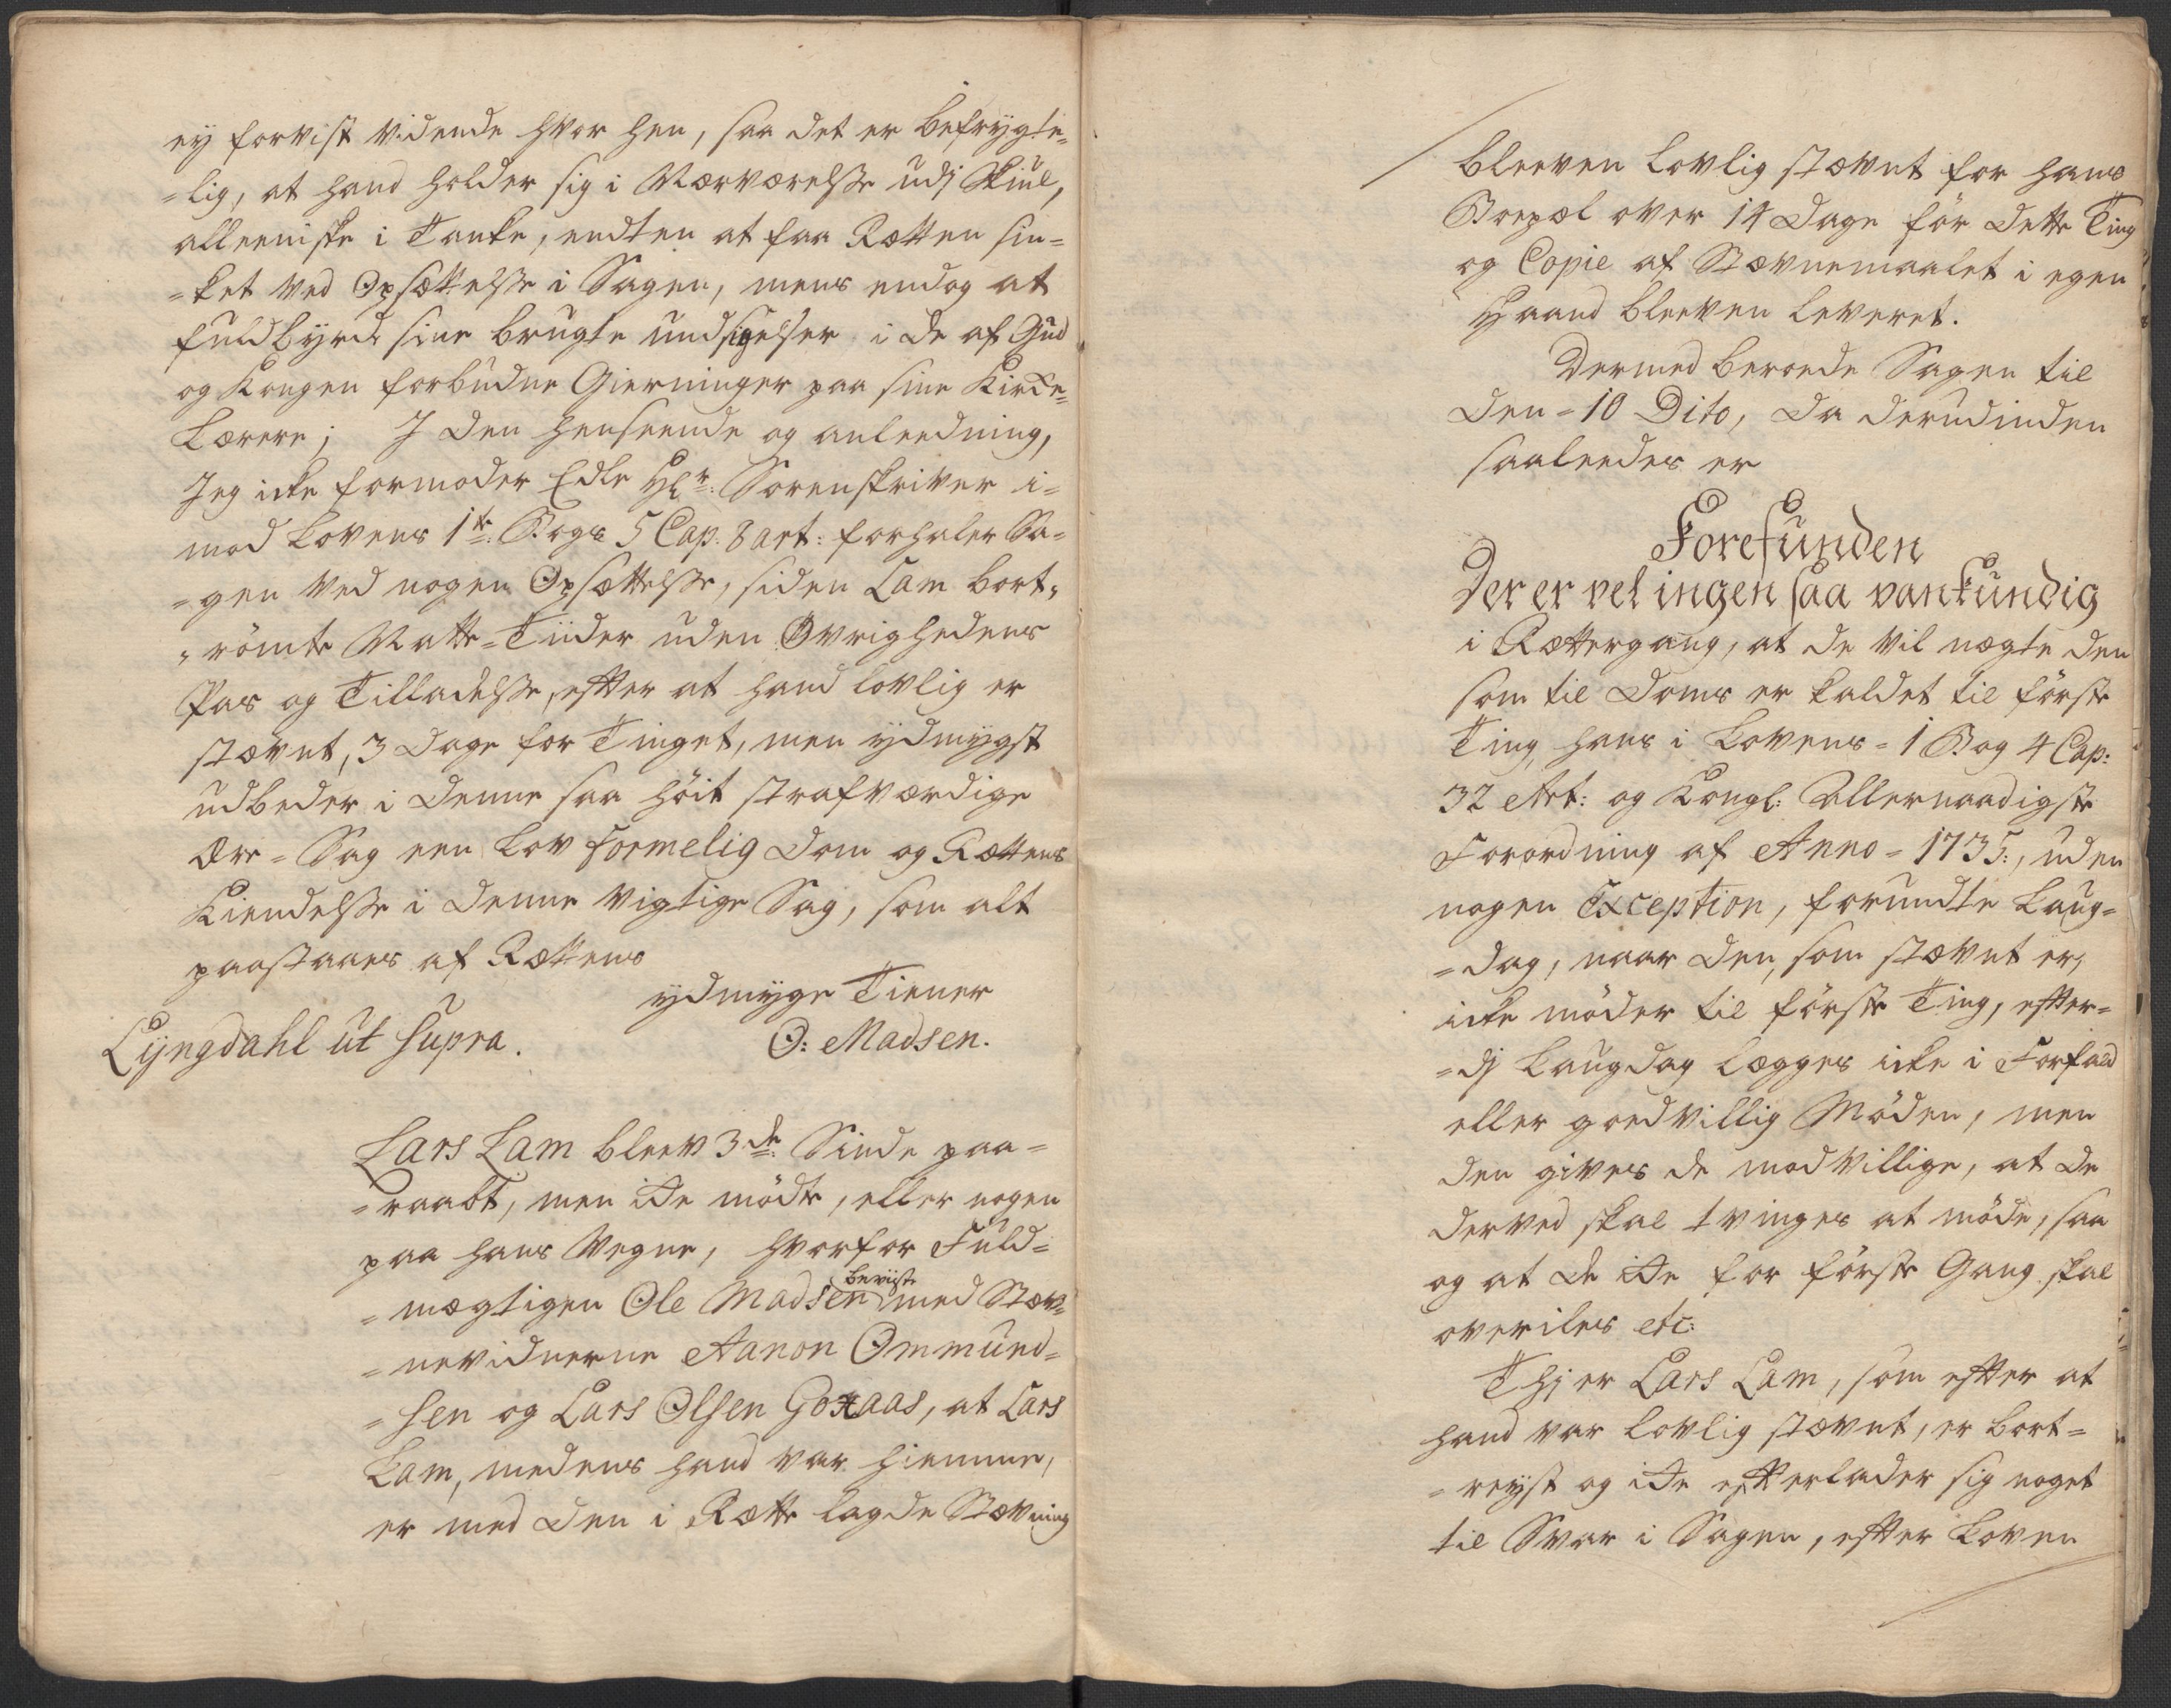 ey forvist vidende hvor hen, saa det er befrygte-
=lig, at hand holder sig i Nærværelsse udj Skiul,
alleeniste i Tanke, endten at faa Rætten sin=
=ket ved Opsættelsse i Sagen, mens endog at
fuldbyrde sine brugte undsigelser i de af Gud
og Kongen forbudne Gierninger paa sine Kircke-
Lærere; J den henseende og anleedning,
Jeg icke formoder Edle Hr: Sorenskriver i=
mod Lovens 1te: Bogs 5 Cap: 8 art: forhaler Sa=
=gen ved nogen Opsættelsse, siden Lam bort=
=römte Natte=Tiider uden Øvrighedens
Pas og Tilladelsse, efter at hand lovlig er
stævnt, 3 Dage for Tinget, men ydmygst
udbeder i denne saa höit strafværdige
Ære=Sag een Lov formelig Dom og Rættens
Kiendelsse i denne vigtige Sag, som alt
paastaaes af Rættens
ydmyge Tiener
Lÿngdahl ut supra. O: Madsen.
Lars Lam bleev 3de: Sinde paa=
=raabt, men icke mödte, eller nogen
paa hans Vegne, hvorfor Fuld=
=mægtigen Ole Madsen beviiste med Stæv=
=nevidnerne Aanon Ommund=
=sen og Lars Olsen Goxaas, at Lars
Lam, medens hand var hiemme,
er med den i Rætte lagde Stævning
bleeven lovlig stævnt for hans
Boepæl over 14 Dage för dette Ting
og Copie af Stævnemaalet i egen
Haand bleeven leveret.
Dermed beroede Sagen til
den=10 Dito, da derudinden
saaleedes er
Forefunden
Der er vel ingen saa vankundig
i Rættergang, at de vil nægte den
som til Doms er kaldet til förste
Ting, hans i Lovens=1 Bog 4 Cap:
32 Art: og Kongl: Allernaadigste
Forordning af Anno=1735:, uden
nogen Exception, forundte Laug=
=dag, naar den, som stævnt er,
icke möder til förste Ting, efter=
=dj Laugdag lægges icke i Forfald
eller goedvillig Möden, men
den gives de modvillige, at de
derved skal tvinges at möde, saa
og at de icke for förste Gang skal
overiles etc:
Thj er Lars Lam, som efter at
hand var lovlig stævnt, er bort=
=reyst og icke efterlader sig noget
til Svar i Sagen, efter Loven